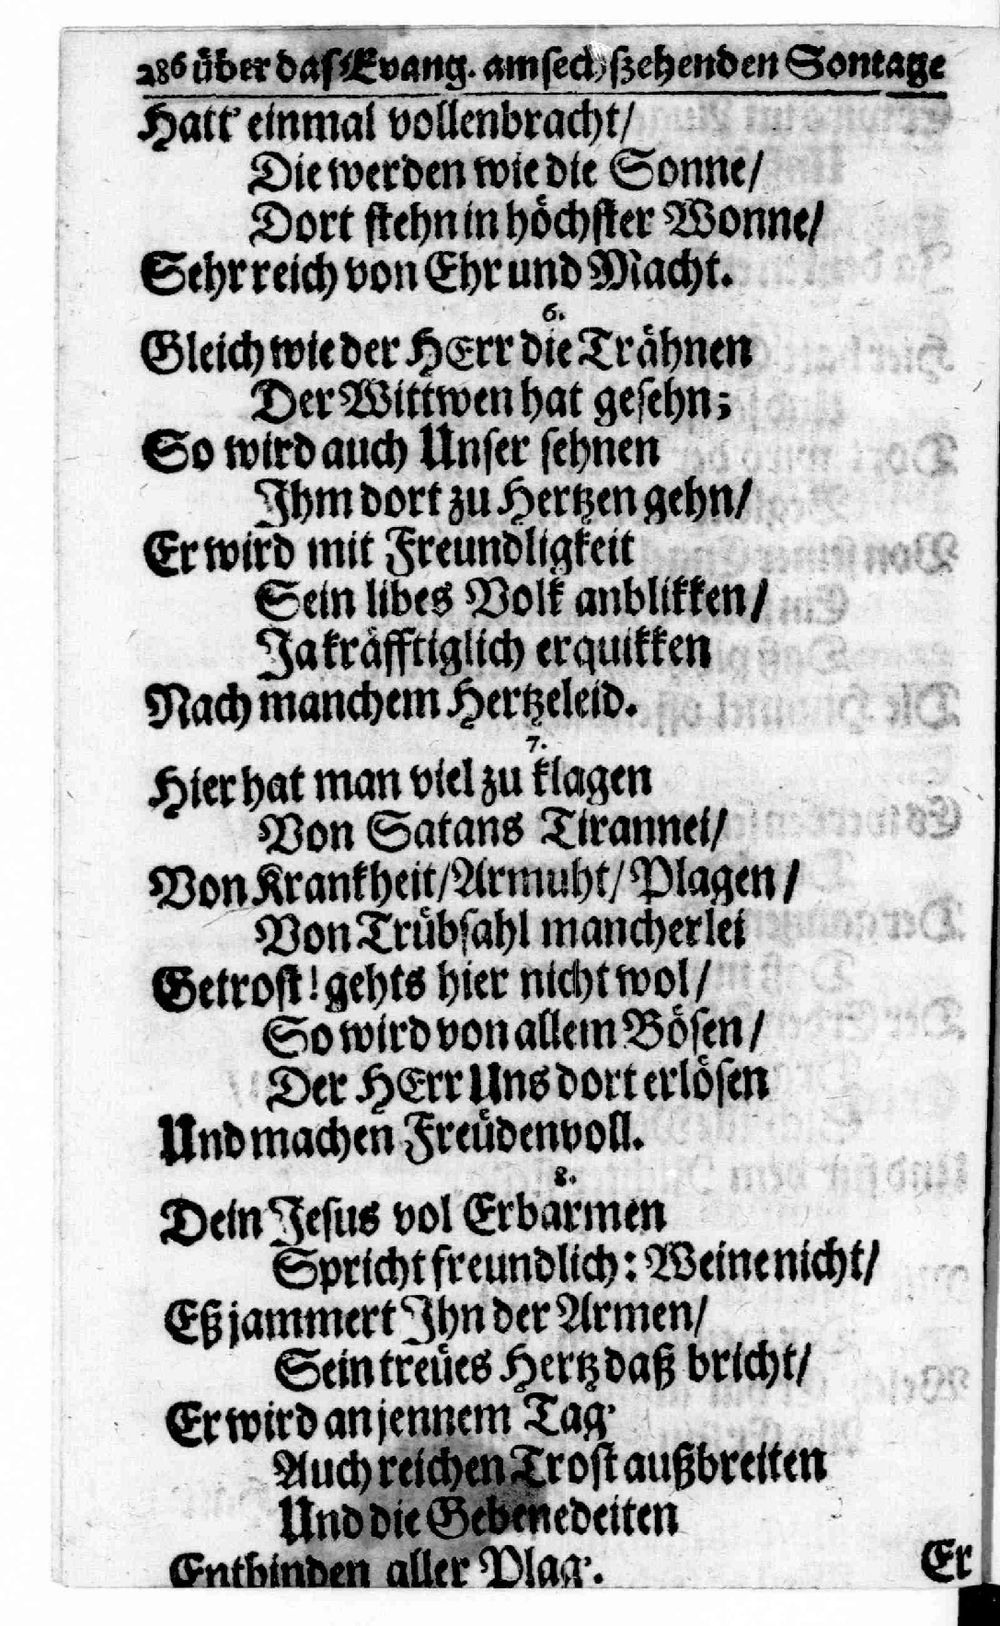 286 über das Evang. am sechszehenden Sontage
Hatt' einmal vollenbracht/
Die werden wie die Sonne/
Dort stehn in höchster Wonne/
Sehr reich von Ehr und Macht.
6.
Gleich wie der HErr die Trähnen
Der Wittwen hat gesehn;
So wird auch Unser sehnen
Jhm dort zu Hertzen gehn/
Er wird mit Freundligkeit
Sein libes Volk anblikken/
Ja kräfftiglich erquikken
Nach manchem Hertzeleid.
7.
Hier hat man viel zu klagen
Von Satans Tirannei/
Von Krankheit/Armuht/Plagen/
Von Trübsahl mancherlei
Getrost! gehts hier nicht wol/
So wird von allem Bösen/
Der HErr Uns dort erlösen
Und machen Freüdenvoll.
8.
Dein Jesus vol Erbarmen
Spricht freundlich: Weine nicht/
Eß jammert Jhn der Armen/
Sein treües Hertz daß bricht/
Er wird an jennem Tag'
Auch reichen Trost außbreiten
Und die Gebenedeiten
Entbinden aller Plag'.
Er